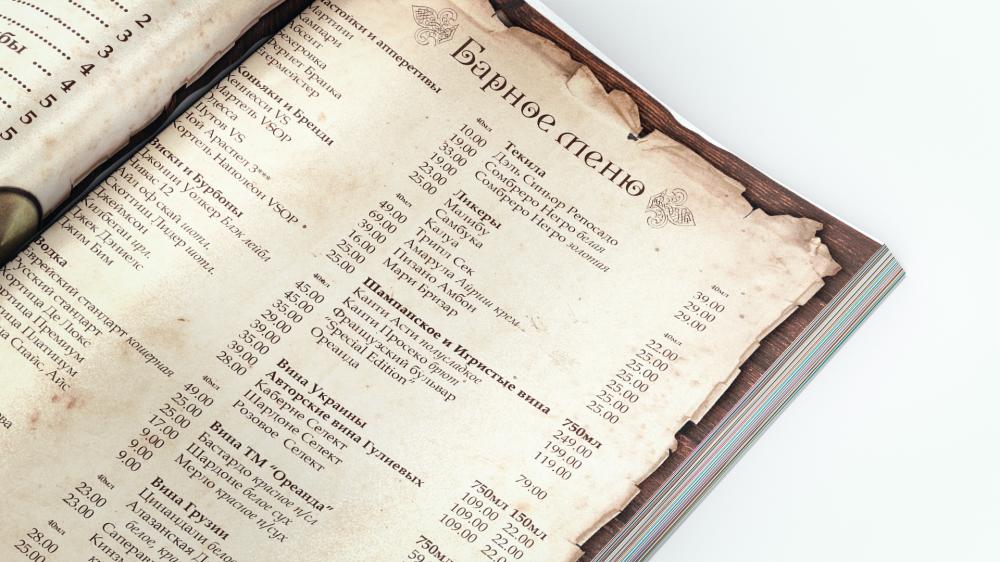 2
3
3
4
4
5
5
бы
Барное меню
настойки и апперетивы
40мл
Мартини
10.00
Кампари
33.00
Абсент
19.00
Бехеровка
23.00
Фернет Бранка
25.00
Егермейстер
Коньяки и Бренди
40мл
Хеннесси VS
49.00
Мартель VSOP
69.00
Одесса
39.00
Шустов VS
16.00
Ной Араспел 3***
25.00
Кортель Наполеон VSOP
25.00
Виски и Бурбоны
40мл
Джонни Уолкер Блэк лейбл
45.00
Чивас 12
45.00
Айл оф скай шотл.
35.00
Скоттиш Лидер шотл.
29.00
Килбеган ирл.
39.00
Джеймсон
35.00
Джек Дэниелс
39.00
Джим Бим
28.00
Водка
40мл
Еврейский стандарт кошерная
49.00
Русский стандарт
25.00
Хортица Де Люкс
25.00
Хортица Премиум
17.00
Хортица Платинум
9.00
Спайс Айс
9.00
9.00
40мл
23.00
23.00
40мл
28.00
25.00
Текила
40мл
Дэль Синьор Репосадо
39.00
Сомбреро Негро белая
29.00
Сомбреро Негро золотая
29.00
Ликеры
40мл
Малибу
22.00
Самбука
25.00
Калуа
25.00
Трипл Сек
25.00
Амарула Айриш крем
25.00
Пизано Амбон
25.00
Мари Бризар
25.00
Шампанское и Игристые вина
750мл
Канти Асти полусладкое
249.00
Канти Просеко брют
199.00
Французский бульвар
119.00
"Special Edition"
Ореанда
79.00
Вина Украины
Авторские вина Гулиевых
750мл 150мл
Каберне Селект
109.00 22.00
Шардоне Селект
109.00 22.00
Розовое Селект
109.00 22.00
Вина ТМ "Ореанда"
750мл
Бастардо красное п/сл
59.
Шардоне белое сух
Мерло красное п/сух
Вина Грузии
Цинандали белое
Алазанская
белое, кра
Саперав
Киндз